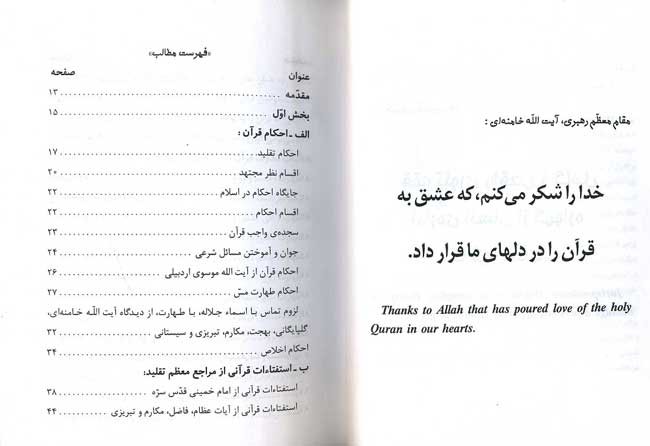 مقام معظّم رهبری، آیت اللّه خامنه‌ای :
خدا را شکر می‌کنم، که عشق به
قرآن را در دلهای ما قرار داد.
Thanks to Allah that has poured love of the holy
Quran in our hearts.
«فهرست مطالب»
عنوان صفحه
مقدّمه ۱۳
بخش اوّل ۱۵
الف ـ احکام قرآن :
احکام تقلید ۱۷
اقسام نظر مجتهد ۲۰
جایگاه احکام در اسلام ۲۲
اقسام احکام ۲۲
سجده‌ی واجب قرآن ۲۳
جوان و آموختن مسائل شرعی ۲۴
احکام قرآن از آیت الله موسوی اردبیلی ۲۶
احکام طهارت مسّ ۲۷
لزوم تماس با اسماء جلاله، با طهارت، از دیدگاه آیت اللّه خامنه‌ای،
گلپایگانی، بهجت، مکارم، تبریزی و سیستانی ۳۲
احکام اخلاص ۳۴
ب ـ استفتاءات قرآنی از مراجع معظم تقلید:
استفتاءات قرآنی از امام خمینی قدّس سرّه ۳۸
استفتاءات قرآنی از آیات عظام، فاضل، مکارم و تبریزی ۴۴